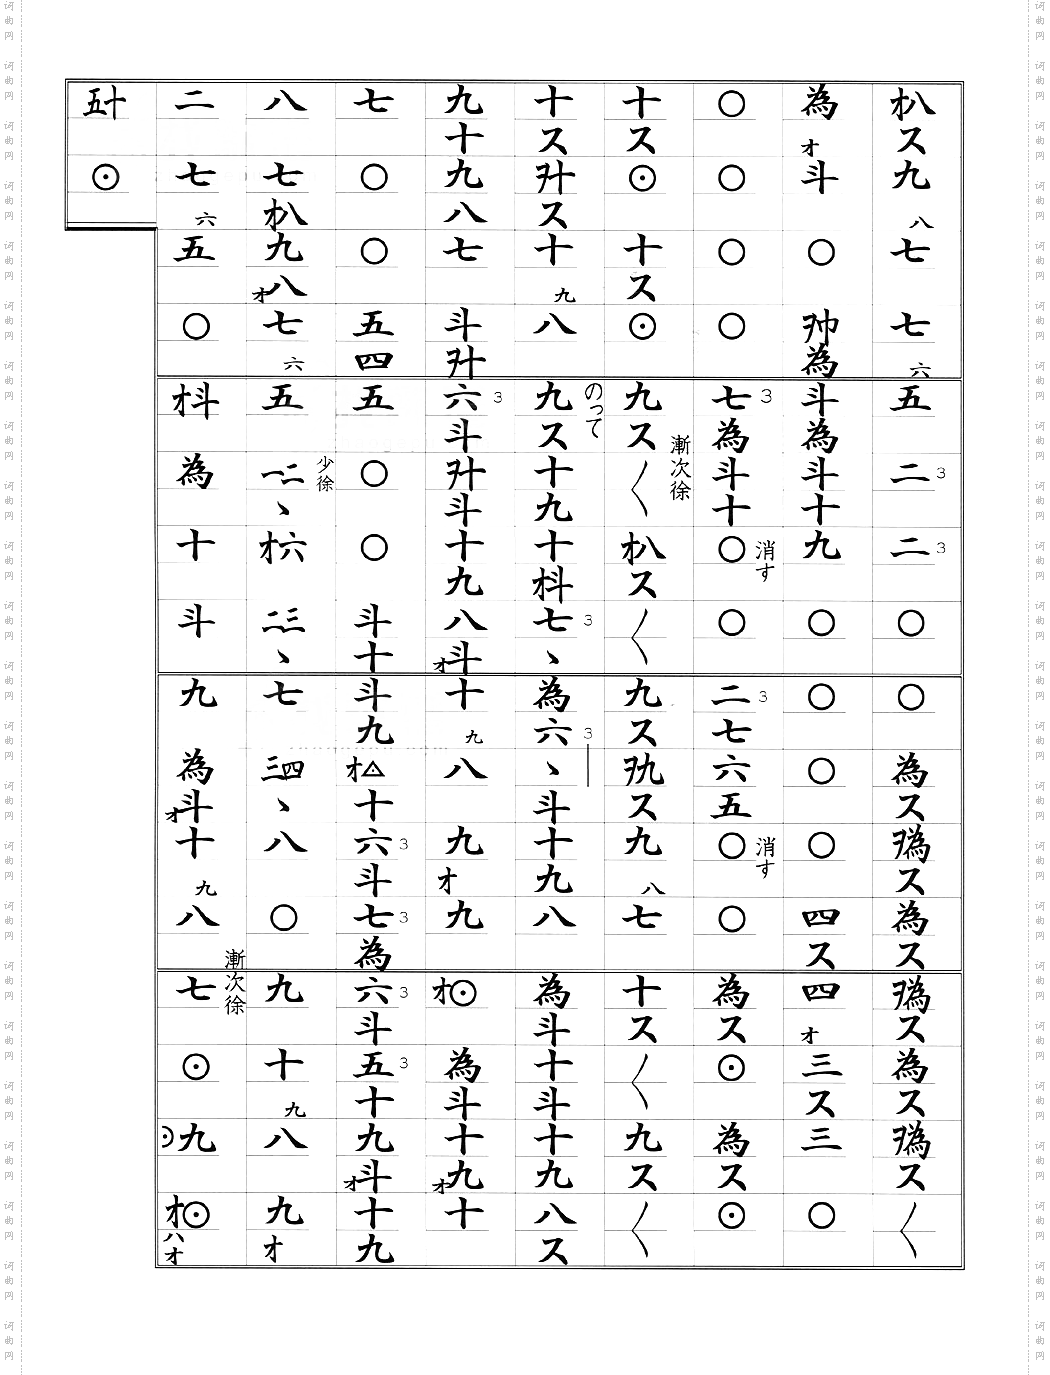 オ八ス九八七七六五二3二3○○為スヲ為ス為スヲ為ス為スヲ為ス〱
為オ斗○ヲ巾為斗為斗十九○○○○四ス四オ三ス三○
○○○○七3為斗十○消す○二3七六五○消す○為ス⊙為ス⊙
十ス⊙十ス⊙九ス〱オ八ス〱九スヲ九ス九八七十ス〱九ス〱
漸次徐
十スヲ十ス十九八九ス十九十オ斗七3ヽ為六3ヽ斗十九八為斗十斗十九八ス
のって
九十九八七斗ヲ十六3斗ヲ十斗十九八オ斗十九八九オ九オ⊙為斗十オ九十
七○○五四五○○斗十斗九オ△十六3斗七3為六3斗五3十九オ斗十九
八七オ八九オ八七六五一二ヽオ六二三ヽ七三四ヽ八○九十九八九オ
少徐
二七六五○オ斗為十斗九為オ斗十九八七⊙⊙九オ⊙八オ
漸次徐
五十⊙
词曲网